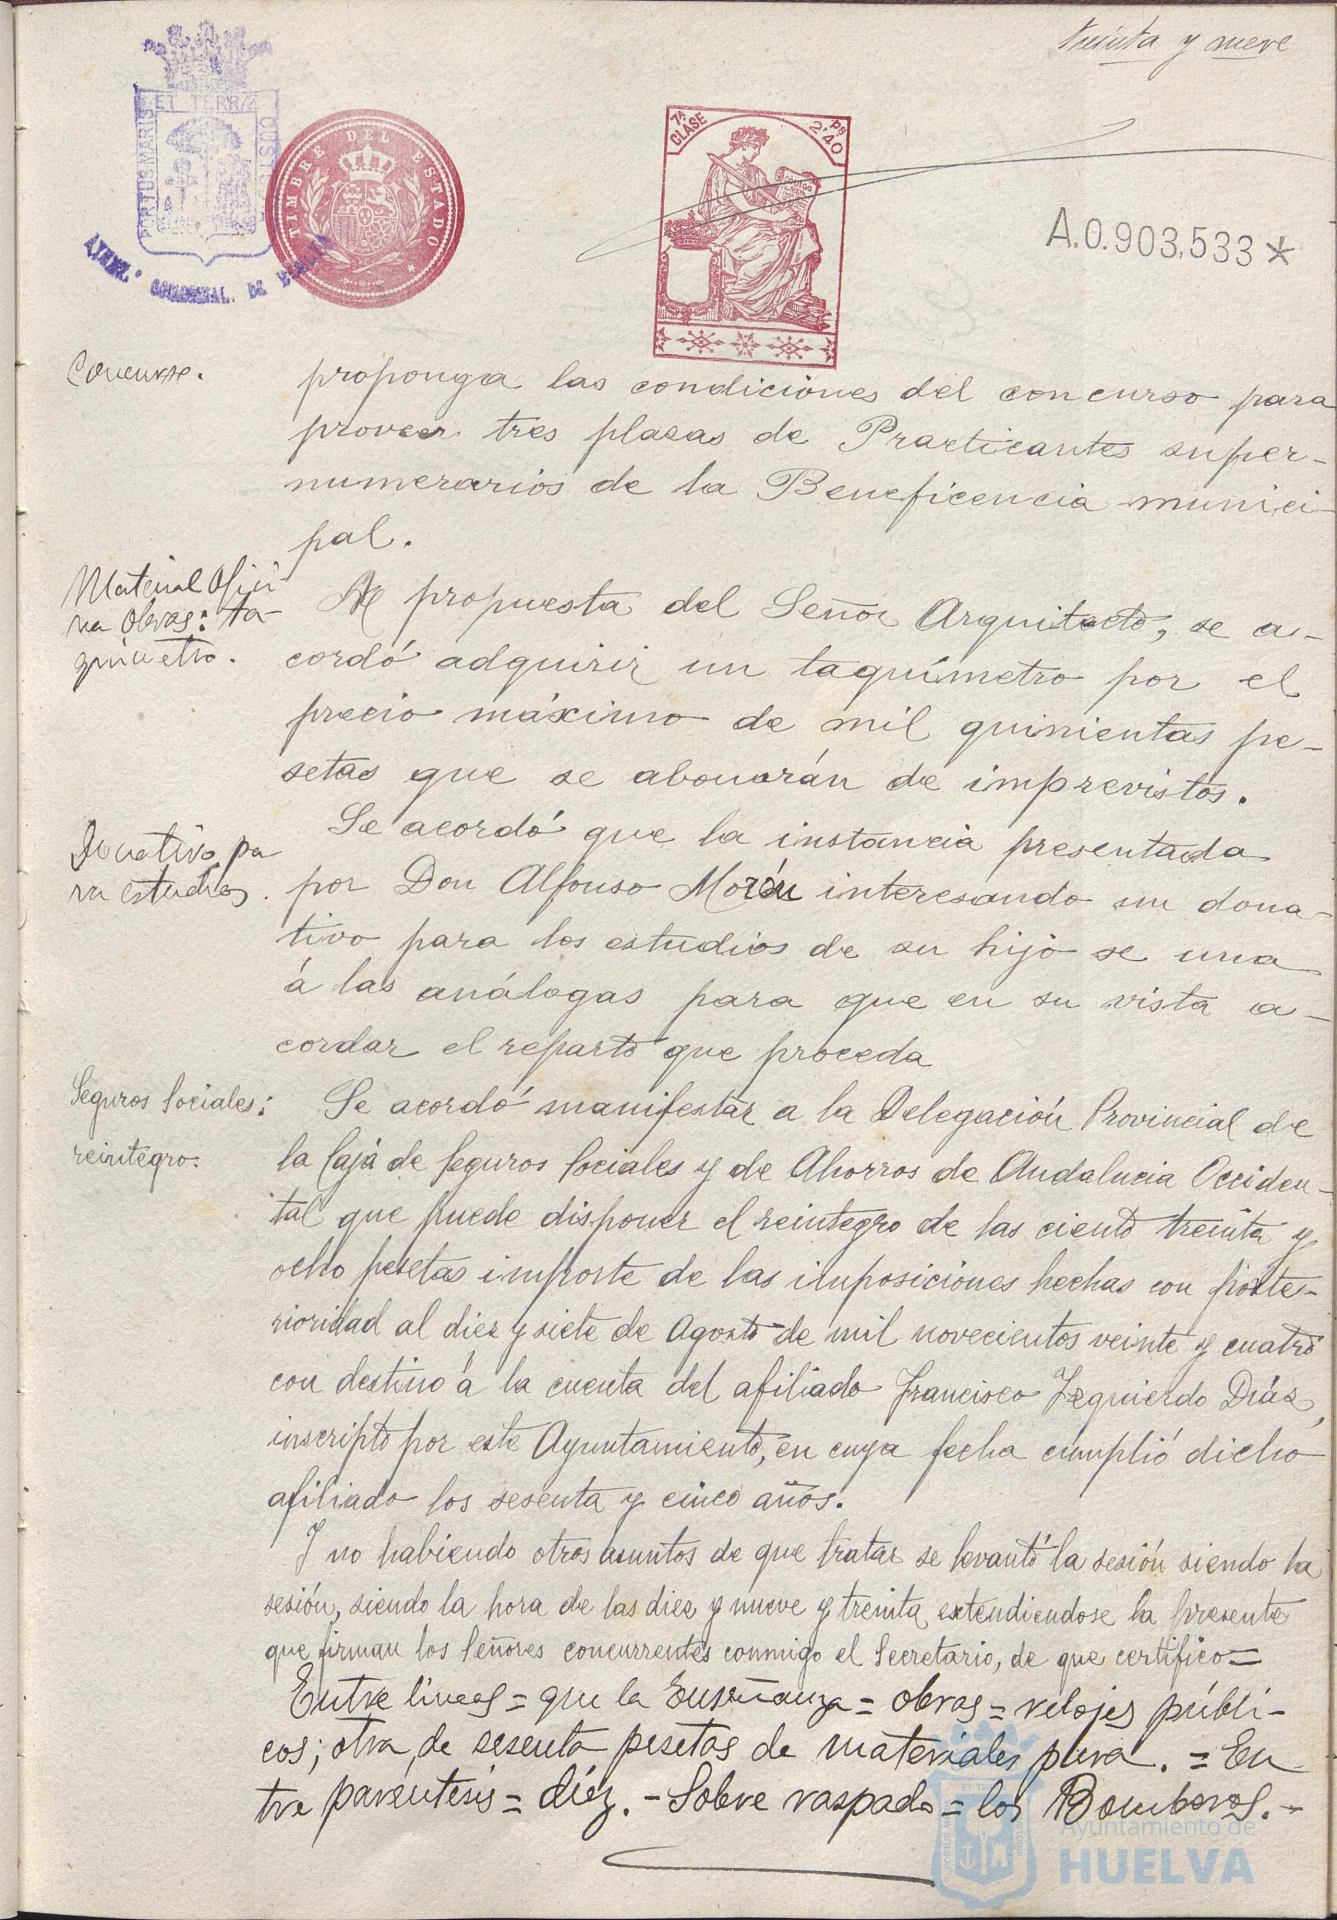 treinta y nueve
PORTUS MARIS ET TERRÆ CUSTODIA
AYUNT. CONSTITUCIONAL. DE HUELVA
TIMBRE DEL ESTADO
7ª CLASE
2'40 PS
A.0.903,533*
Concurso.
proponga las condiciones del concurso para
proveer tres plazas de Practicantes super-
numerarios de la Beneficencia munici-
pal.
Material Ofici-
na Obras: ta-
químetro.
A propuesta del Señor Arquitecto, se a-
cordó adquirir un taquímetro por el
precio máximo de mil quinientas pe-
setas que se abonarán de imprevistos.
Donativo pa
ra estudios.
Se acordó que la instancia presentada
por Don Alfonso Morón interesando un dona-
tivo para los estudios de su hijo se una
á las análogas para que en su vista a-
cordar el reparto que proceda
Seguros Sociales:
reintegro.
Se acordó manifestar a la Delegación Provincial de
la Caja de Seguros Sociales y de Ahorros de Andalucia Occiden-
tal que puede disponer el reintegro de las ciento treinta y
ocho pesetas importe de las imposiciones hechas con poste-
rioridad al diez y siete de Agosto de mil novecientos veinte y cuatro
con destino á la cuenta del afiliado Francisco Izquierdo Diáz,
inscripto por este Ayuntamiento, en cuya fecha cumplió dicho
afiliado los sesenta y cinco años.
Y no habiendo otros asuntos de que tratar se levantó la sesión siendo la
sesión, siendo la hora de las diez y nueve y treinta, extendiendose la presente
que firman los Señores concurrentes conmigo el Secretario, de que certifico=
Entre lineas= que la Enseñanza= obras= relojes públi-
cos; otra, de sesenta pesetas de materiales para. = En
tre paréntesis= diez. - Sobre raspado= los Bomberos.-
Ayuntamiento de
HUELVA